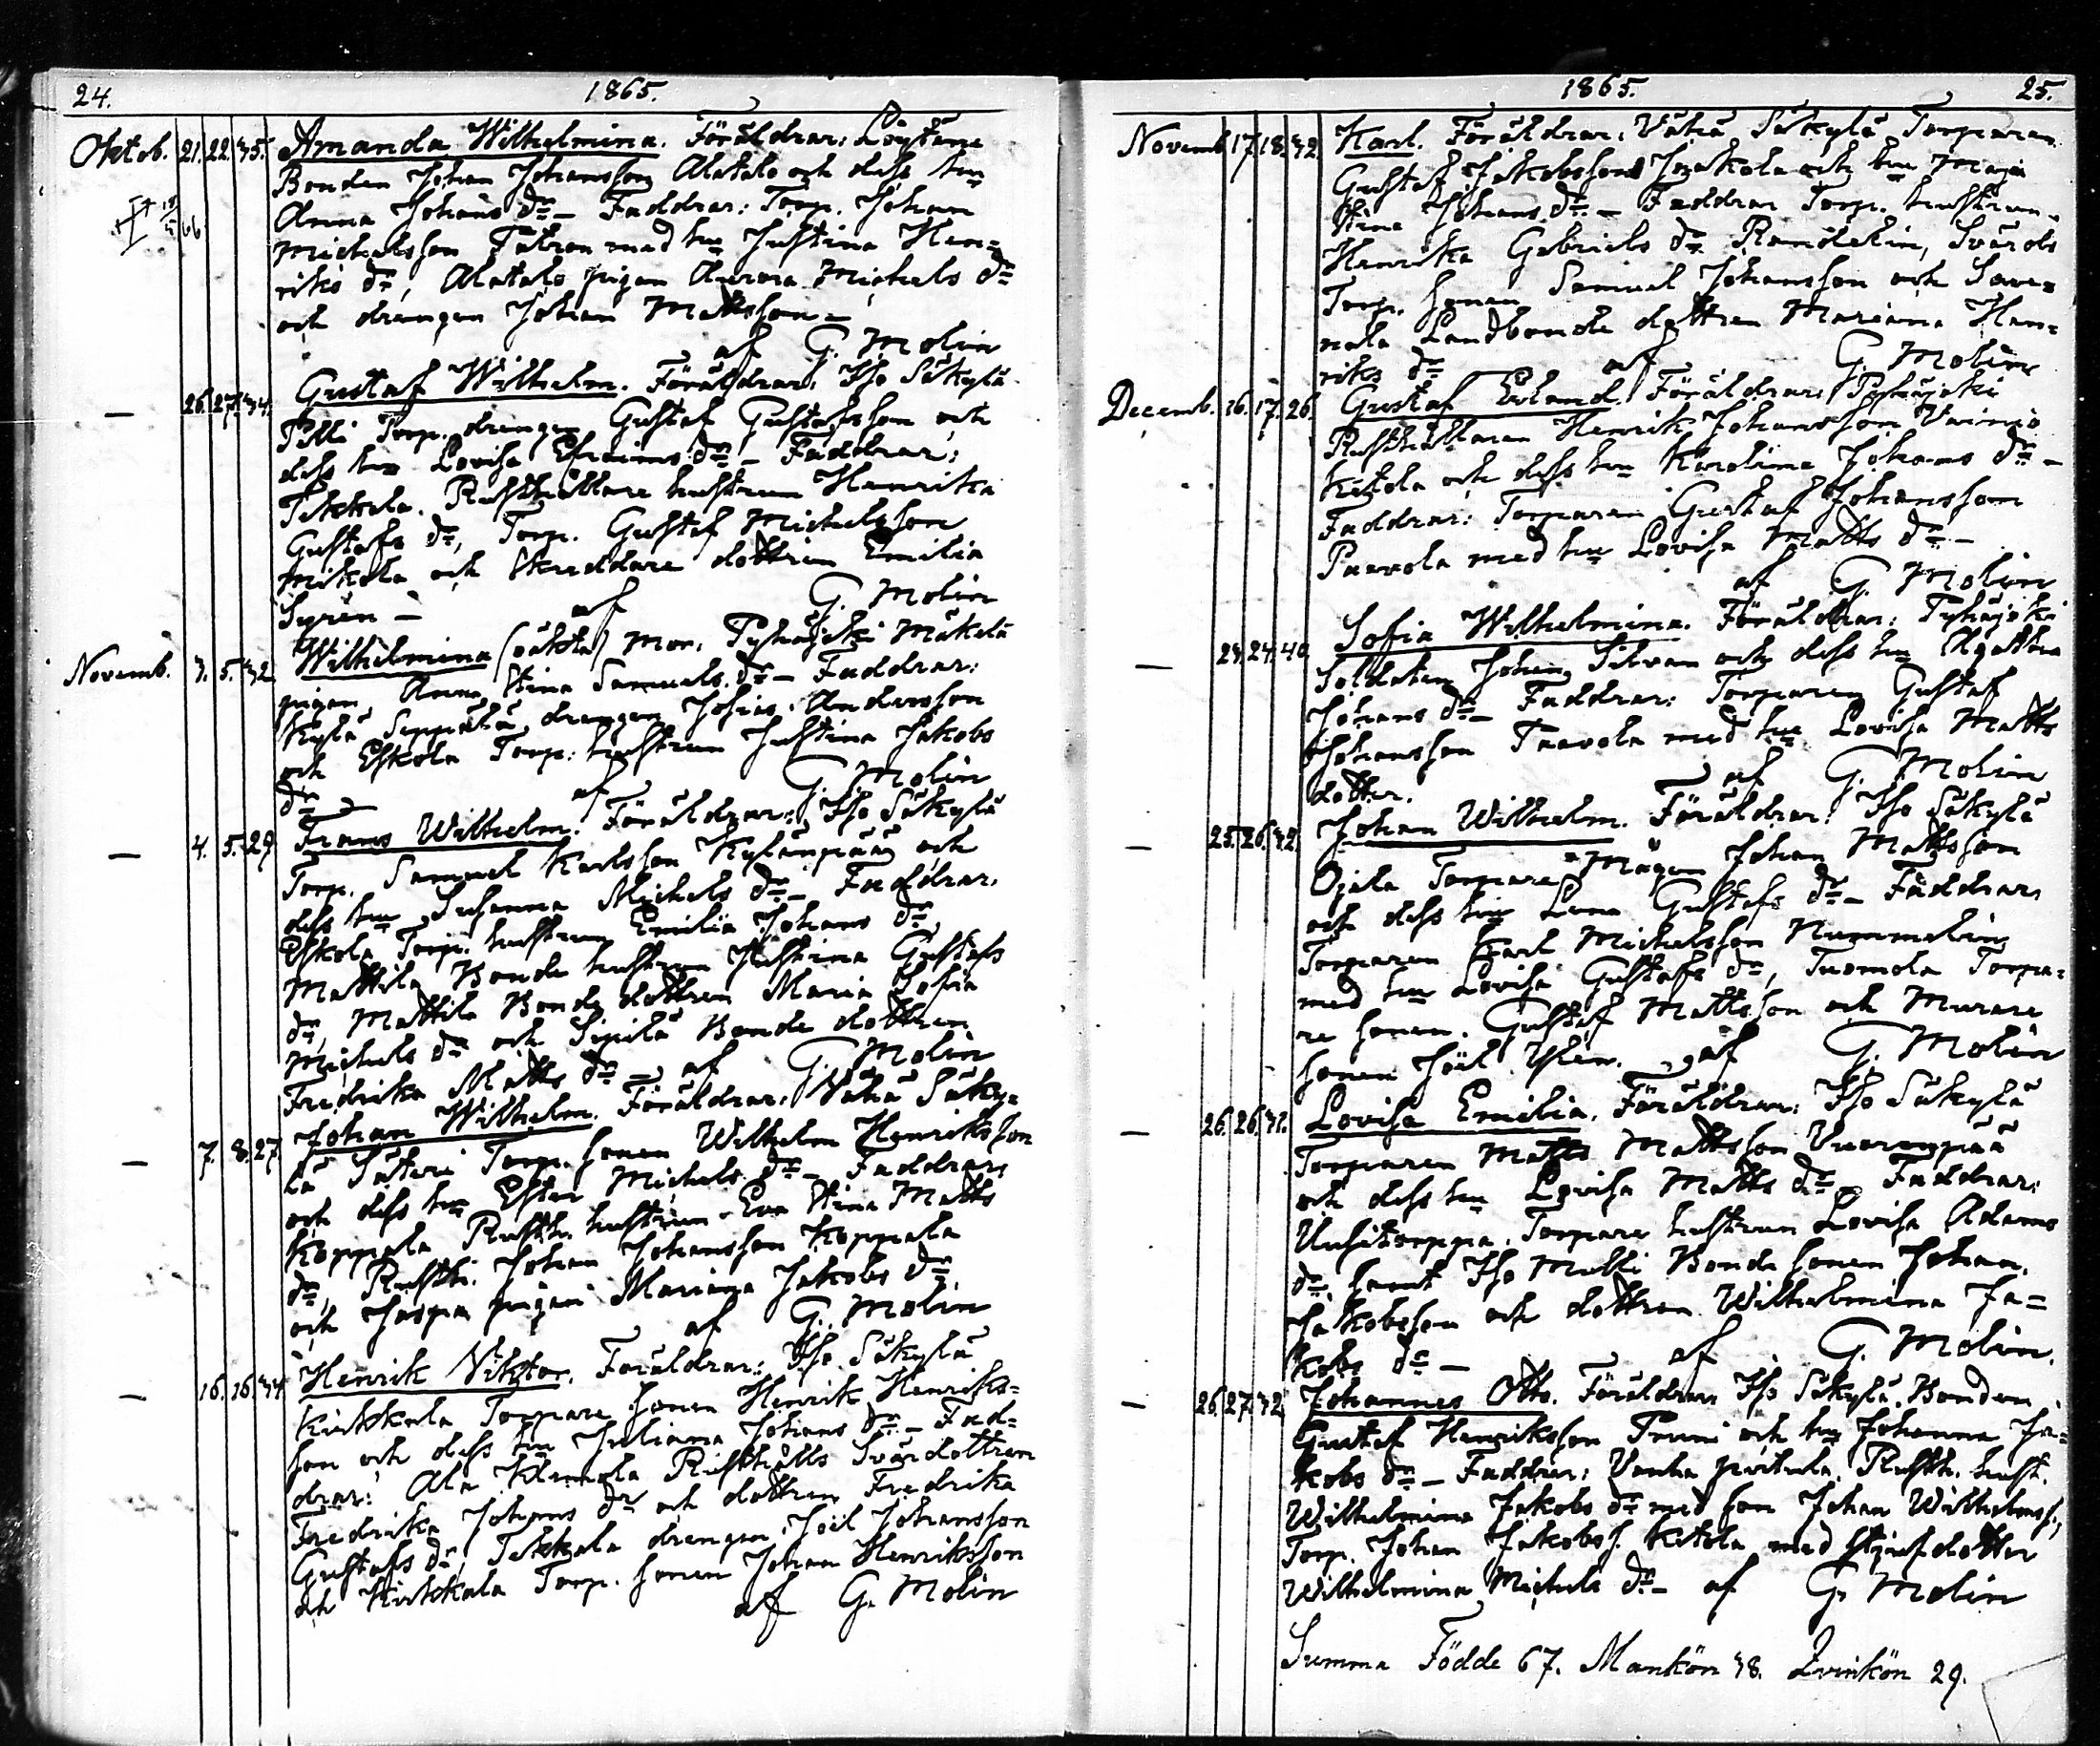 24. 1865.
Oktob. 21. 22. 35. Amanda Wilhelmina. Föräldrar: Löytäne
Bonden Johan Johansson Alatalo och dess hu
Anna Johans dr – Faddrar: Torp. Johan
Michelsson Fäbron med hu Justina Hen-
riks dr, Alatalo pigan Aurora Michels dr
och drengen Johan Mattsson –
af G. Molin
— 26. 27. 34. Gustaf Wilhelm. Föräldrar: Iso Säkylä
Pilli Torp. drengen Gustaf Gustafsson och
dess hu Lovisa Efraims dr – Faddrar:
Tikkala Rusthållare hustrun Henrika
Gustafs dr, Torp. Gustaf Michelsson
Mikola och Skreddare dottren Emilia
Syrén – af G. Molin
Novemb. 3. 5. 32. Wilhelmina (oäkta) Mor: Pyhäjoki Mäkelä
pigan Anna Stina Samuels dr – Faddrar:
Kylä Seppälä drengen Josias Andersson
och Eskola Torp. hustrun Justina Jakobs
dr – af G. Molin
— 4. 5. 29. Frans Wilhelm. Föräldrar: Iso Säkylä
Torp. Samuel Karlsson Kylänpää och
dess hu Susanna Michels dr – Faddrar:
Eskola Torp. hustrun Emilia Johans dr,
Mattila Bonde hustrun Justina Gustafs
dr, Mattila Bonde dottren Maria Sofia
Michels dr och Sipilä Bonde dottren
Fredrika Matts dr – af G. Molin
— 7. 8. 27. Johan Wilhelm. Föräldrar: Vähä Säky-
lä Säteri Torp. sonen Wilhelm Henriksson
och dess hu Ester Michels dr – Faddrar:
Koppala Rusth. hustrun Eva Stina Matts
dr, Rusth. Johan Johansson Koppala
och Jaspa pigan Mariana Jakobs dr
af G. Molin
— 16. 16. 34. Henrik Viktor. Föräldrar: Iso Säkylä
Kirkkala Torpare sonen Henrik Henriks-
son och dess hu Juliana Johans dr – Fad-
drar: Ala Klemola Rusthålls Svärdottren
Fredrika Johans dr och dottren Fredrika
Gustafs dr, Tikkala drengen Joël Johansson
och Kirkkala Torp. sonen Johan Henriksson
af G. Molin
1865. 25.
Novemb. 17. 18. 32. Karl. Föräldrar: Vähä Säkylä Torparen
Gustaf Jakobsson och hu Maja
Stina Johans dr – Faddrar Torp. hustrun
Henrika Gabriels dr Randelin, Svärds
Torp. sonen Samuel Johansson och
Landbonde dottren Mariana Hen-
riks dr af G. Molin
Decemb. 16. 17. 26. Gustaf Erland. Föräldrar: Pyhäjoki
Rusthållaren Henrik Johansson Vainio
Ketola och dess hu Karolina Johans dr –
Faddrar: Torparen Gustaf Johansson
Paavola med hu Lovisa Matts dr –
af G. Molin
— 24. 24. 40. Sofia Wilhelmina. Föräldrar: Pyhäjoki
Soldaten Johan Silvan och dess hu Agatha
Johans dr – Faddrar: Torparen Gustaf
Johansson Paavola med hu Lovisa Matts
dotter. af G. Molin
— 25. 26. 32. Johan Wilhelm. Föräldrar: Iso Säkylä
Ojala Torpare Mågen Johan Mattsson
och dess hu Lena Gustafs dr – Faddrar:
Torparen Karl Michelsson Nummelin
med hu Lovisa Gustafs dr, Tuomola Torpa-
re sonen Gustaf Mattsson och Murare
sonen Joël Ylén. af G. Molin
— 26. 26. 31. Lovisa Emilia. Föräldrar: Iso Säkylä
Torparen Matts Mattsson Vuorenpää
och dess hu Lovisa Matts dr – Faddrar:
Uusitorppa Torpare hustrun Lovisa Adams
dr samt Iso Mälli Bonde sonen Johan
Jakobsson och dottren Wilhelmina Ja-
kobs dr – af G. Molin.
— 26. 27. 32. Johannes Otto. Föräldrar Iso Säkylä Bonden
Gustaf Henriksson Pruni och hu Johanna Ja-
kobs dr – Faddrar: Vanha Rusth. hust.
Wilhelmina Jakobs dr med son Johan Wilhelmss.,
Torp. Johan Jakobss. Ketola med styfdotter
Wilhelmina Michels dr – af G. Molin
Summa Födde 67. Mankön 38. Qvinkön 29.